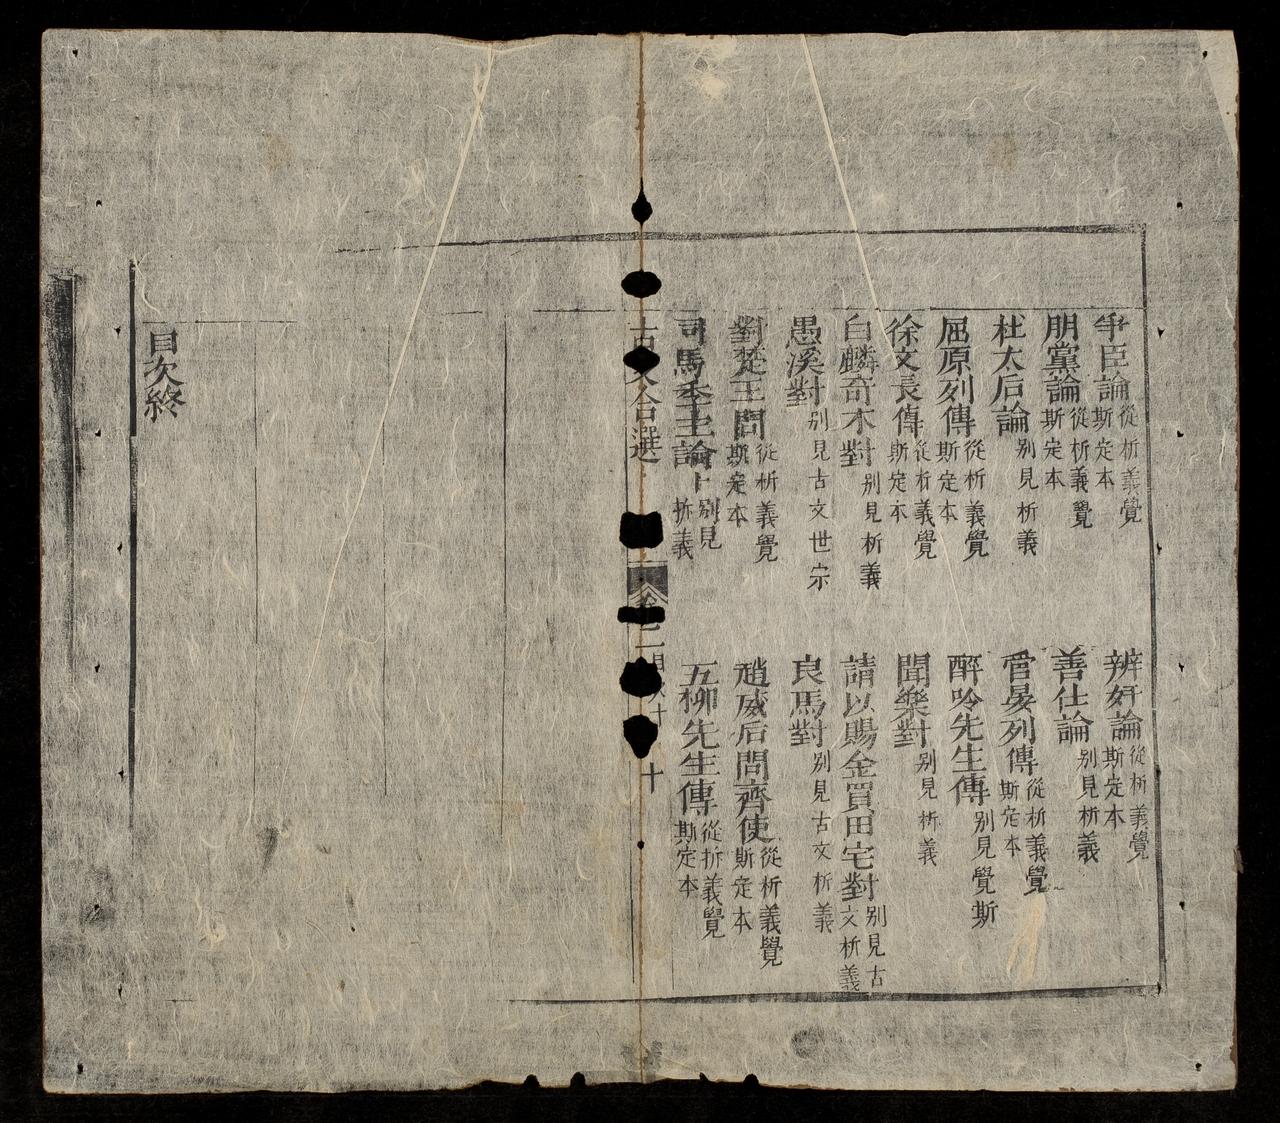 爭臣論從析義覺斯定本
辨奸論從析義覺斯定本
朋黨論從析義覺斯定本
善仕論別見析義
杜太后論別見析義
管晏列傳從析義覺斯定本
屈原列傳從析義覺斯定本
醉吟先生傳別見覺斯
徐文長傳從析義覺斯定本
聞樂對別見析義
白麟奇木對別見析義
請以賜金買田宅對別見古文析義
愚溪對別見古文世宗
良馬對別見古文析義
對楚王問從析義覺斯定本
趙威后問齊使從析義覺斯定本
司馬季主論卜別見析義
五柳先生傳從折義覺斯定本
古文合選
十
目次終